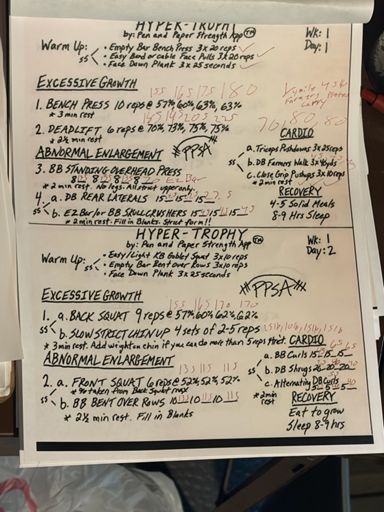 HYPER-TROPHY
by: Pen and Paper Strength App TM
Wk: 1
Day: 1
Warm Up:
SS
• Empty Bar Bench Press 3x20 reps
• Easy Band or cable Face Pulls 3x20 reps
• Face Down Plank 3x25 seconds
EXCESSIVE GROWTH
155 165 175 180
1. BENCH PRESS 10 reps @ 57%, 60%, 63%, 63%
* 3 min rest
2. DEADLIFT 6 reps @ 70%, 73%, 75%, 75%
* 2½ min rest
ABNORMAL ENLARGEMENT
#PPSA
3. BB STANDING OVERHEAD PRESS
* 2 min rest. No legs. All strict upper only.
4. a. DB REAR LATERALS
SS
b. EZ Bar/or BB SKULLCRUSHERS
* 2 min rest. Fill in Blanks. Strict form!!
CARDIO
SS
a. Triceps Pushdowns 3x25reps
b. DB Farmers Walk 3x40yds
c. Close Grip Pushups 3x10reps
* 2 min rest
RECOVERY
4-5 Solid Meals
8-9 Hrs Sleep
HYPER-TROPHY
by: Pen and Paper Strength App TM
Wk: 1
Day: 2
Warm Up:
SS
• Easy/Light KB Goblet Squat 3x10 reps
• Empty Bar Bent Over Rows 3x10 reps
• Face Down Plank 3x25 seconds
#PPSA
EXCESSIVE GROWTH
155 165 170 170
1. a. BACK SQUAT 9 reps @ 57%, 60%, 62%, 62%
SS
b. SLOW STRICT CHIN UP 4 sets of 2-5 reps
* 3 min rest. Add weight on chin if you can do more than 5 reps strict.
ABNORMAL ENLARGEMENT
135 115 115
2. a. FRONT SQUAT 6 reps @ 52%, 52%, 52%
* %s taken from Back Squat max
SS
b. BB BENT OVER ROWS
* 2½ min rest. Fill in Blanks
CARDIO
SS
a. BB Curls
b. DB Shrugs
c. Alternating DB Curls
* 2 min rest
RECOVERY
Eat to grow
Sleep 8-9 hrs